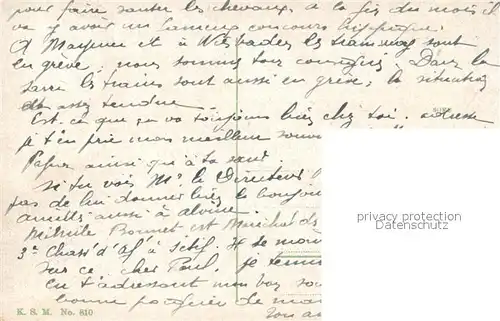 pour faire sauter les chevaux. à la fin du mois il
va y avoir un fameux concours hippique.
A Mayence et à Wiesbaden les tramways sont
en grève, nous sommes tous consignés. Dans la
Sarre les trains sont aussi en grève, la situation
est assez tendue
Est-ce que ça va toujours bien chez toi. adresse
je t'en prie mon meilleur souvenir
Papa, ainsi qu'à ta sœur.
Si tu vois Mr le Directeur
pas de lui donner bien le bonjour
amitiés aussi à
Bonnet est Maréchal des
3e Chass' d'Af' à Sétif. Il se
Sur ce, cher Paul, je
en t'adressant mon
bonne poignée de main
Ton
privacy protection
Datenschutz
K. S. M. No. 810